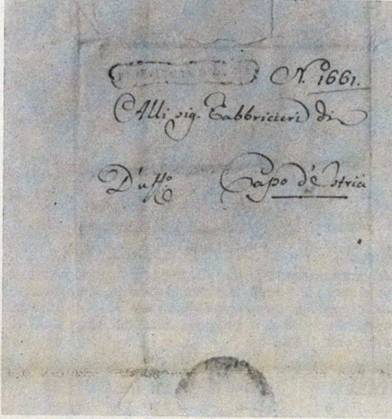 N.º 1661.
Alli sig. Fabbricieri di
D'uff.º Capo d'Istria